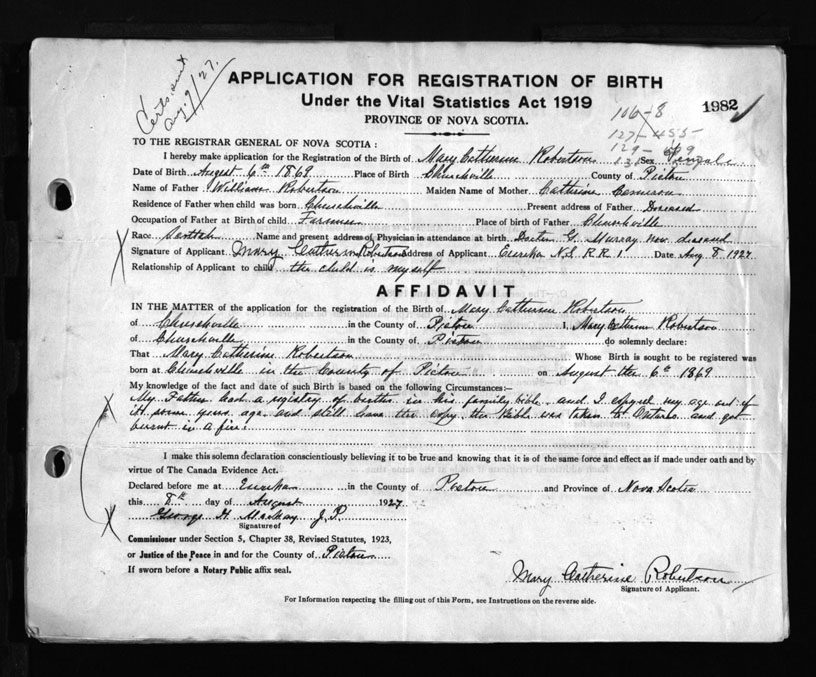 Certs. sent
Aug. 9/27.
APPLICATION FOR REGISTRATION OF BIRTH
Under the Vital Statistics Act 1919
PROVINCE OF NOVA SCOTIA.
1982
106-8
127-455
129-
TO THE REGISTRAR GENERAL OF NOVA SCOTIA:
I hereby make application for the Registration of the Birth of Mary Catherine Robertson Sex Female
Date of Birth August 6th 1869 Place of Birth Churchville County of Pictou
Name of Father William Robertson Maiden Name of Mother Catherine Cameron
Residence of Father when child was born Churchville Present address of Father Deceased
Occupation of Father at Birth of child Farmer Place of birth of Father Churchville
Race Scottish Name and present address of Physician in attendance at birth Doctor G. Murray now diseased
Signature of Applicant Mary Catherine Robertson Address of Applicant Eureka N.S. R R 1 Date Aug 8 1927
Relationship of Applicant to child the child is myself
AFFIDAVIT
IN THE MATTER of the application for the registration of the Birth of Mary Catherine Robertson
of Churchville in the County of Pictou I, Mary Catherine Robertson
of Churchville in the County of Pictou do solemnly declare:
That Mary Catherine Robertson Whose Birth is sought to be registered was
born at Churchville in the County of Pictou on August the 6th 1869
My knowledge of the fact and date of such Birth is based on the following Circumstances:—
My Father had a registry of births in his family bible and I copyed my age out of
it some years ago and still have the copy the Bible was taken to Ontario and got
burnt in a fire
I make this solemn declaration conscientiously believing it to be true and knowing that it is of the same force and effect as if made under oath and by
virtue of The Canada Evidence Act.
Declared before me at Eureka in the County of Pictou and Province of Nova Scotia
this 8th day of August 1927
George H Mackay J. P.
Signature of
Commissioner under Section 5, Chapter 38, Revised Statutes, 1923,
or Justice of the Peace in and for the County of Pictou
If sworn before a Notary Public affix seal.
Mary Catherine Robertson
Signature of Applicant.
For Information respecting the filling out of this Form, see Instructions on the reverse side.